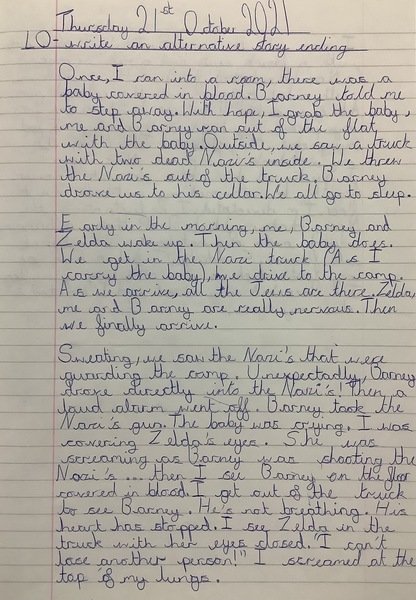 Thursday 21st October 2021
LO- write an alternative story ending
Once, I ran into a room, there was a
baby covered in blood. Barney told me
to step away. With hope, I grab the baby,
me and Barney ran out of the flat,
with the baby. Outside, we saw a truck
with two dead Nazi's inside. We threw
the Nazi's out of the truck. Barney
drove us to his cellar. We all go to sleep.
Early in the morning, me, Barney and
Zelda wake up. Then the baby does.
We get in the Nazi truck (As I
carry the baby), we drive to the camp.
As we arrive, all the Jews are there. Zelda,
me and Barney are really nervous. Then
we finally arrive.
Sweating, we saw the Nazi's that were
guarding the camp. Unexpectadly, Barney
drove directly into the Nazi's! Then a
loud alarm went off. Barney took the
Nazi's gun. The baby was crying, I was
covering Zelda's eyes. She was
screaming as Barney was shooting the
Nazi's ... then I see Barney on the floor
covered in blood. I get out of the truck
to see Barney. He's not breathing. His
heart has stopped. I see Zelda in the
truck with her eyes closed. "I can't
lose another person!" I screamed at the
top of my lungs.